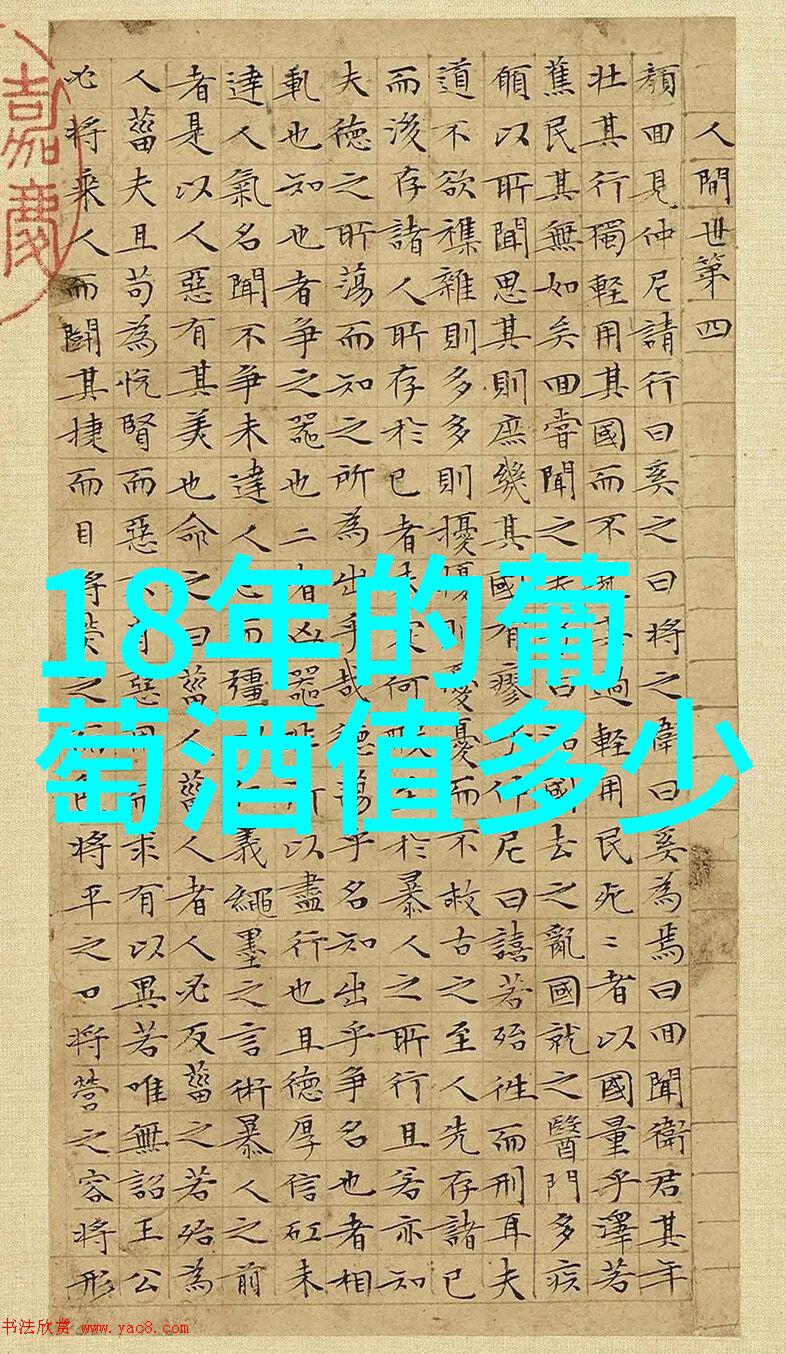 人間世第四
顏回見仲尼請行曰奚之曰將之衛曰奚為焉曰回聞衛君其年
壯其行獨輕用其國而不其過輕用民死〻者以國量乎澤若
蕉民其無如矣回嘗聞之夫曰治國去之亂國就之醫門多疾
願以所聞思其則庶幾其國有瘳乎仲尼曰譆若殆往而刑耳夫
道不欲襍雜則多多則擾擾則憂憂而不救古之至人先存諸已
而後存諸人所存於已者未定何暇於暴人之所行且若亦知
夫德之所蕩而知之所為出乎哉德蕩乎名知出乎爭名也者相
軋也知也者爭之器也二者凶器非所以盡行也且德厚信矼未
達人氣名聞不爭未達人心而彊義繩墨之言術暴人之前
者是以人惡有其美也命之曰菑人菑人者人必反菑之若殆為
人菑夫且苟為悅賢而惡不肖惡用而求有以異若唯無詔王公
必將乘人而鬭其捷而目將熒之而色將平之口將營之容將形
嘉慶
18年的葡
萄酒值多少
书法欣赏 www.yac8.com